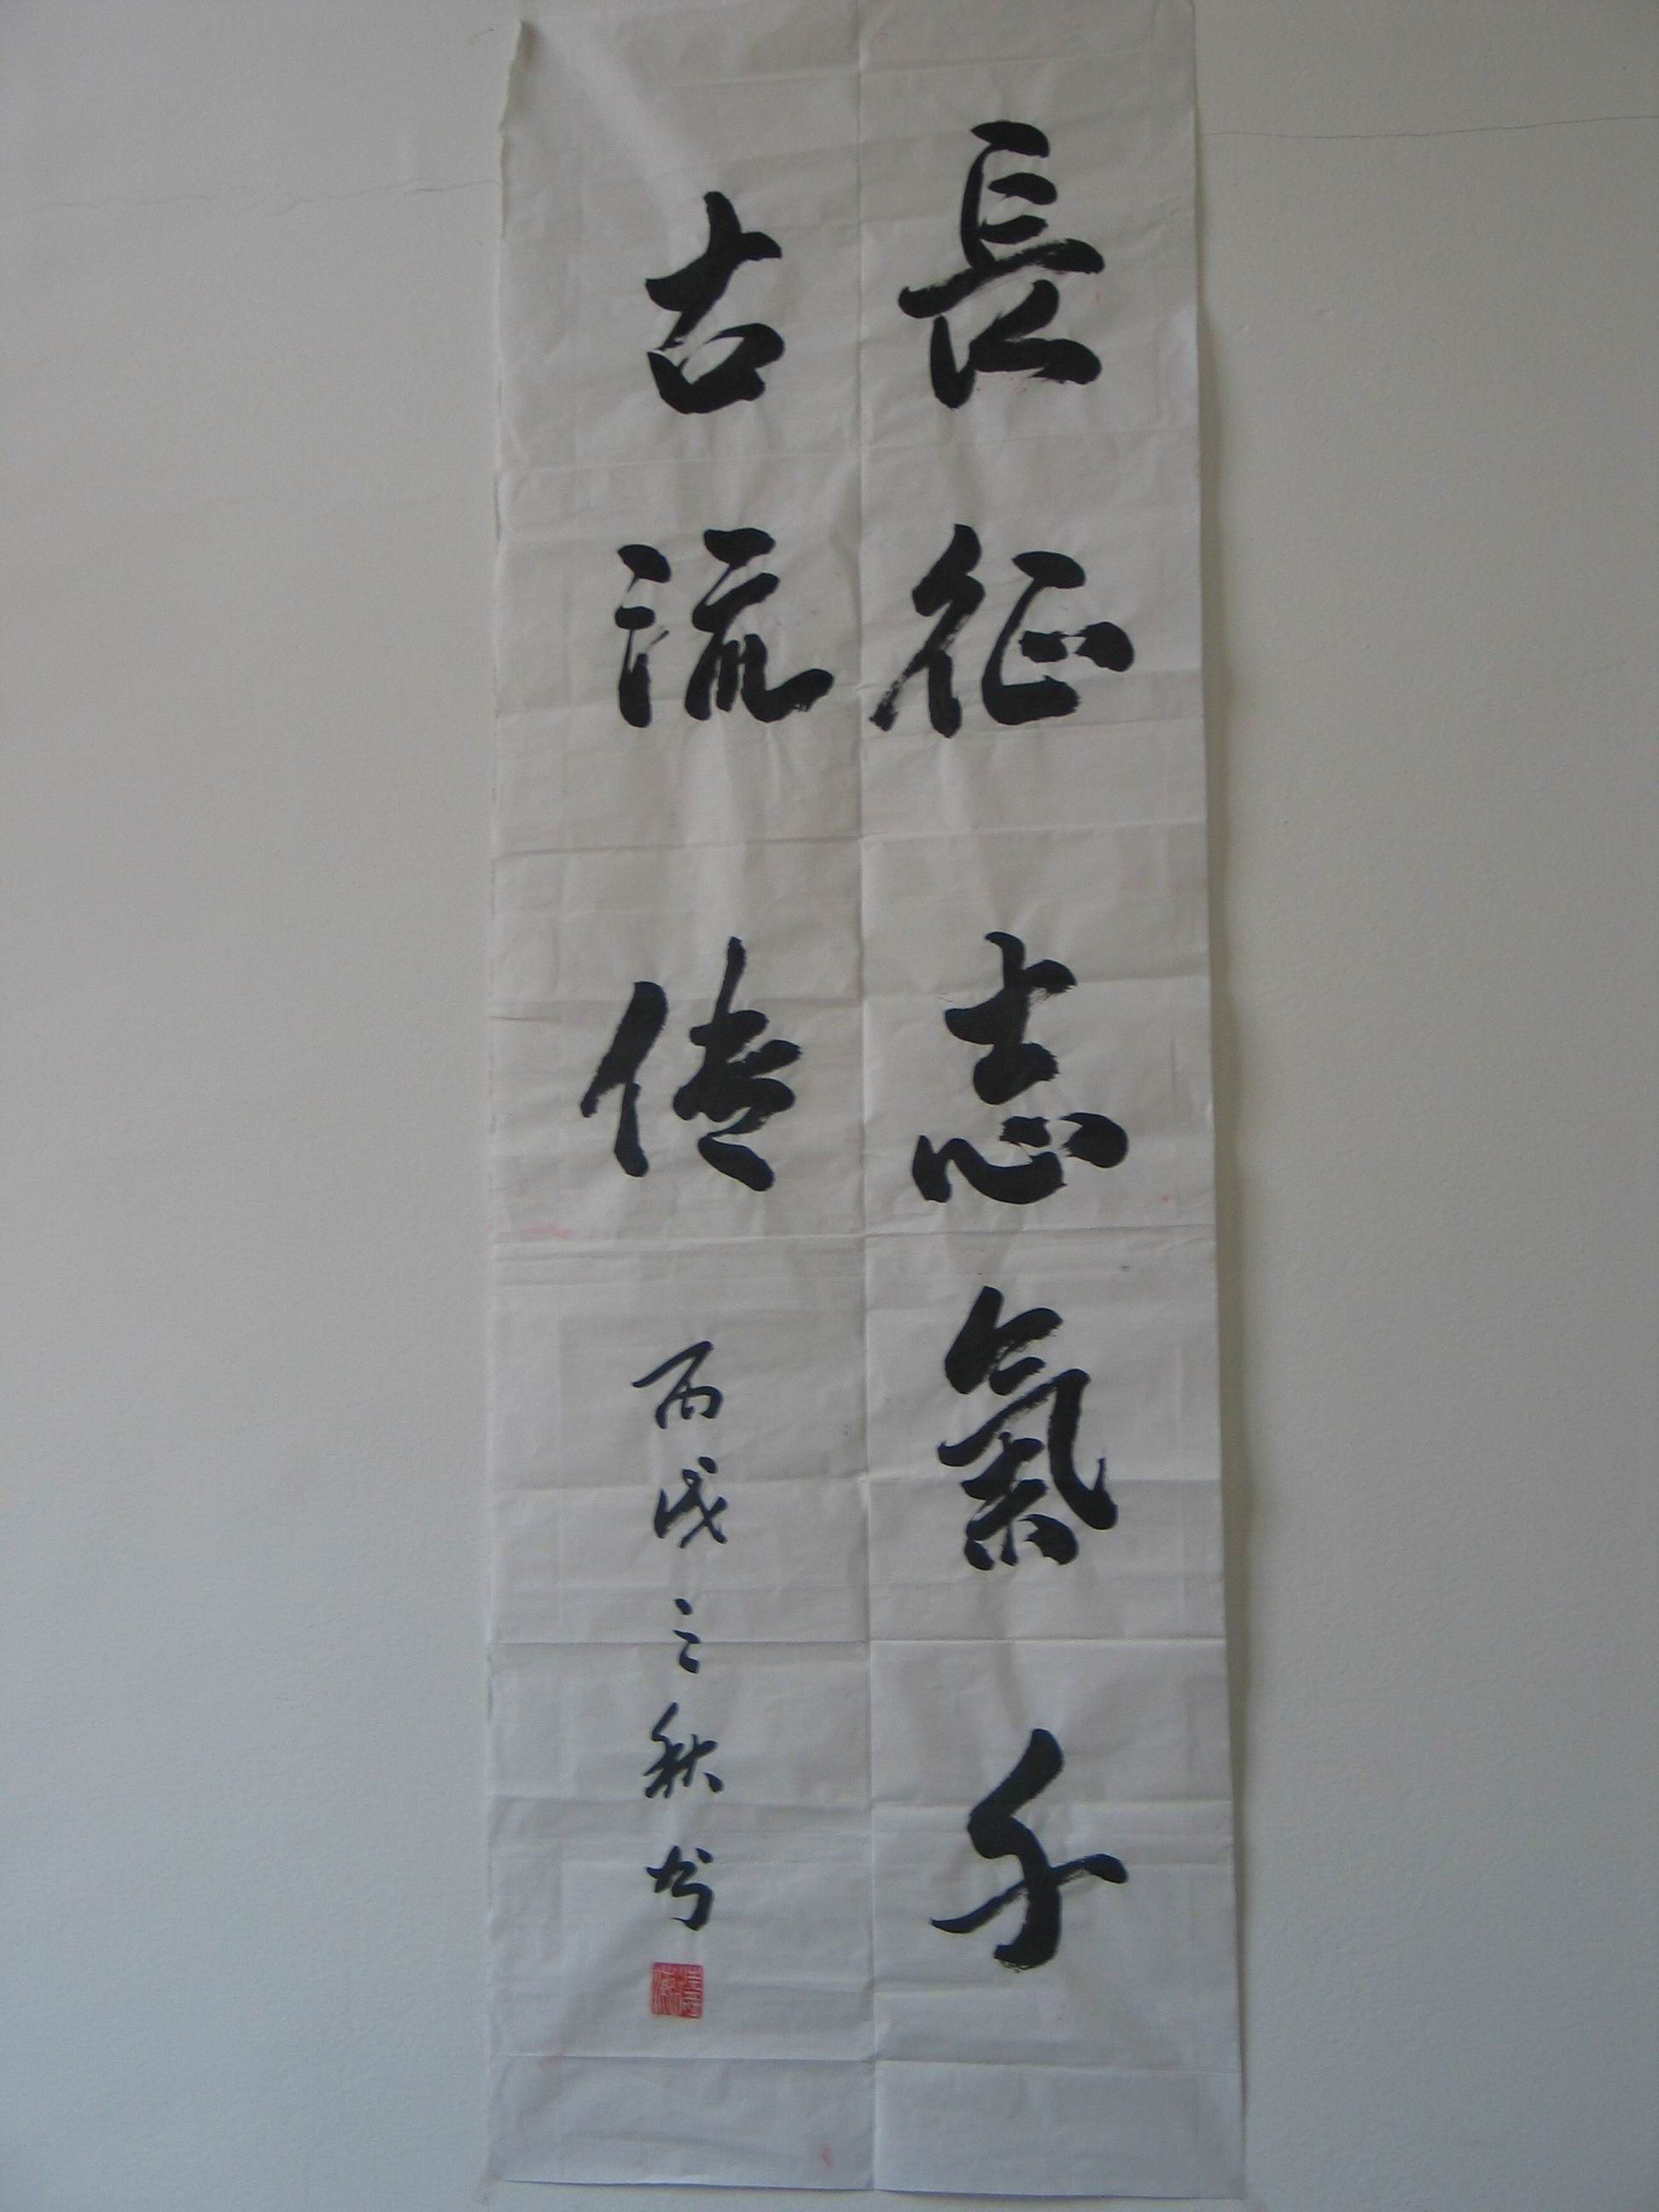 長征志氣千
古流传
丙戌之秋书